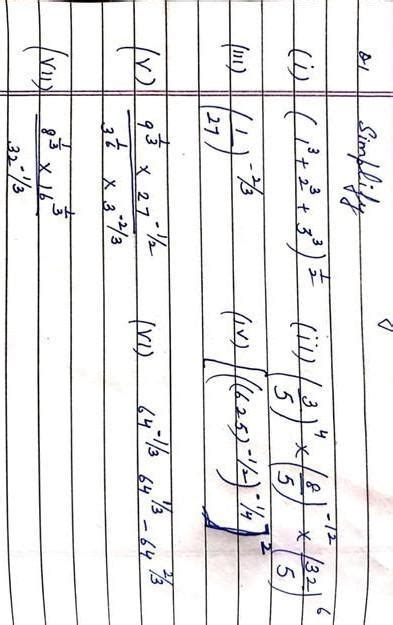 Q1 Simplify
(i) (1³ + 2³ + 3³)^{1/2} (ii) (3/5)⁴ × (8/5)^{-12} × (32/5)⁶
(iii) (1/27)^{-2/3} (iv) [((625)^{-1/2})^{-1/4}]²
(v) (9^{1/3} × 27^{-1/2}) / (3^{1/6} × 3^{-2/3}) (vi) 64^{-1/3} 64^{1/3} - 64^{2/3}
(vii) (8^{1/3} × 16^{1/3}) / 32^{-1/3}